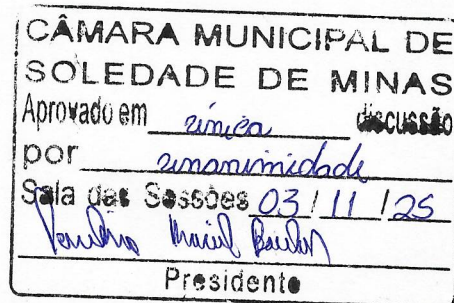 CÂMARA MUNICIPAL DE
SOLEDADE DE MINAS
Aprovado em única discussão
por unanimidade
Sala das Sessões 03/11/25
Maciel
Presidente